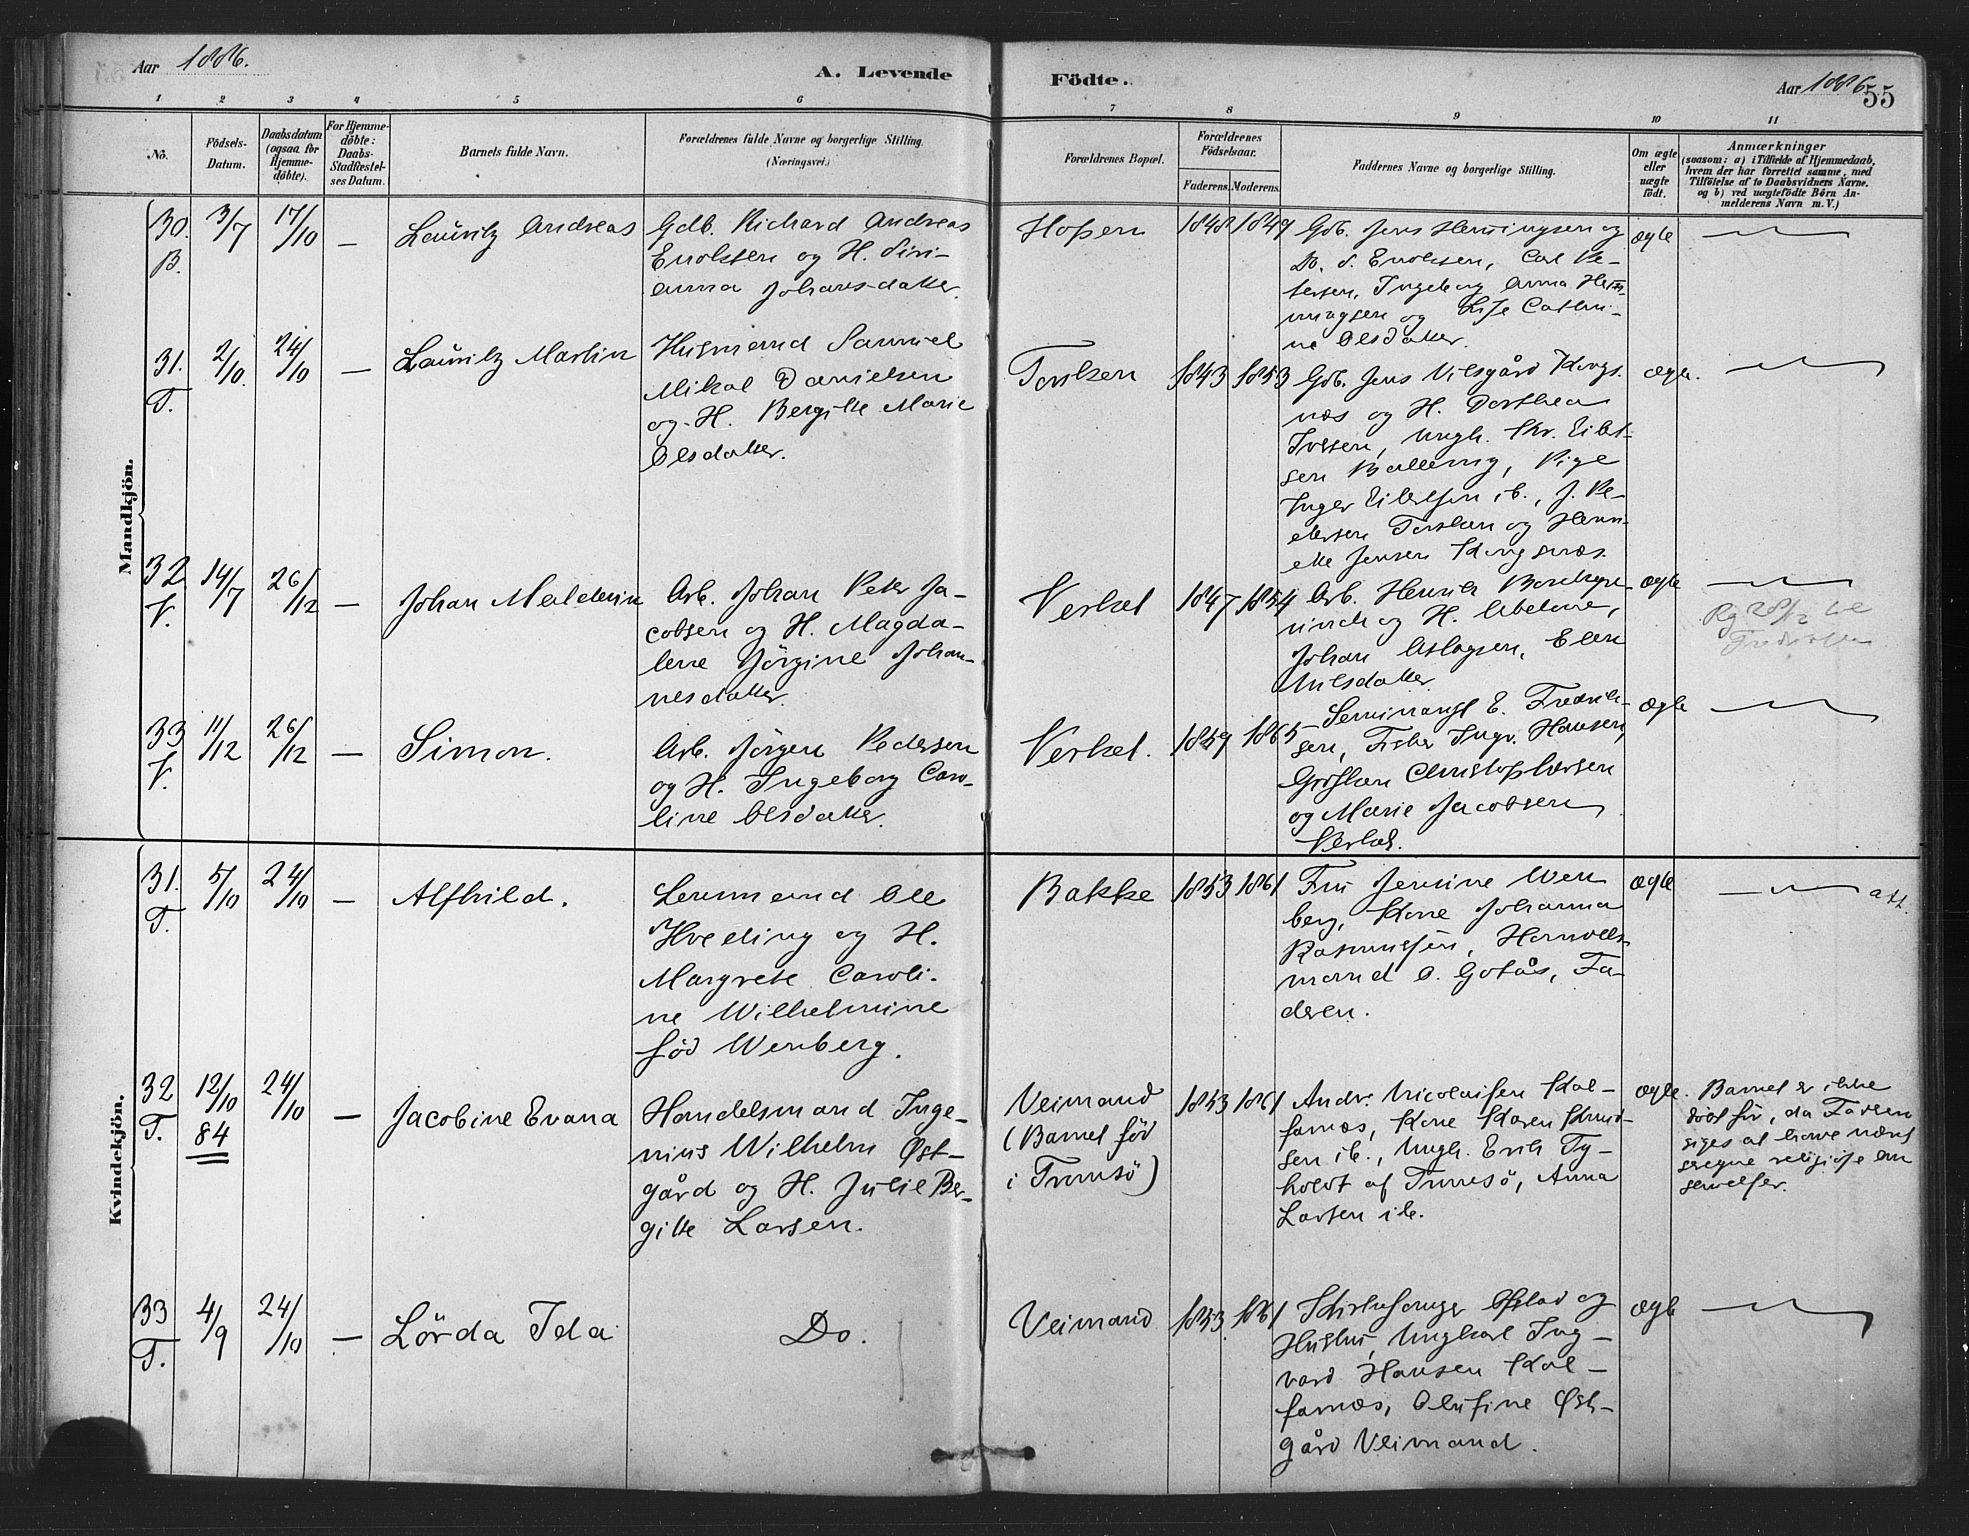 Aar 1886.
A. Levende Födte.
Aar 1886.
55
1 2 3 4 5 6 7 8 9 10 11
No.
Födsels-
Datum.
Daabsdatum
(ogsaa for
Hjemme-
döbte).
For Hjemme-
döbte:
Daabs-
Stadfæstel-
ses Datum.
Barnets fulde Navn.
Forældrenes fulde Navne og borgerlige Stilling.
(Næringsvei.)
Forældrenes Bopæl.
Forældrenes
Födselsaar.
Faderens. Moderens.
Faddernes Navne og borgerlige Stilling.
Om ægte
eller
uægte
födt.
Anmærkninger
(saasom: a) i Tilfælde af Hjemmedaab,
hvem der har forrettet samme, med
Tilföielse af to Daabsvidners Navne.
og b) ved uægtefödte Börn An-
melderens Navn m. V.)
Mandkjön.
30.
B.
3/7
17/10
—
Lauritz Andreas
Gdb. Richard Andreas
Enoksen og H. Siri-
anna Johansdatter.
Hofsen
1848 1849
Gdb. Jens Henningsen og
Do. S. Enoksen, Carl Pe-
tersen, Ingeborg Anna Hen-
ningsen og Lise Cathri-
ne Olsdatter.
ægte
31.
T.
2/10.
24/10
—
Lauritz Martin
Husmand Samuel
Mikal Danielsen
og H. Bergitte Marie
Olsdatter.
Torsken
1843 1853
Gdb. Jens Nilsgård Kongs-
næs og H. Dorthea
Iversen, Ungk. Chr. Eilert-
sen Ballesvig, Pige
Inger Eilertsen ib., J. Pe-
dersen Torsken og Henri-
ette Jensen Kongsnæs.
ægte.
32
V.
14/7
26/12
—
Johan Meldevin
Arb. Johan Peter Ja-
cobsen og H. Magda-
lene Jørgine Johan-
nesdatter.
Verket
1847 1854
Arb. Henrik
og H. Abelone,
Johan Aslagsen, Elen
Nilsdatter.
ægte
33
V.
11/12
26/12
—
Simon.
Arb. Jørgen Pedersen
og H. Ingeborg Caro-
line Olsdatter.
Verket.
1859 1865
Seminarist E. Fredrik-
sen, Fisker Ingv. Hansen,
Christophersen
og Marie Jacobsen
Verket.
ægte
Kvindekjön.
31.
T.
5/10
24/10
—
Alfhild.
Lensmand Ole
Hveding og H.
Margrete Caroli-
ne Wilhelmine
fød Wenberg.
Bakke
1853 1861
Fru Jensine Wen
berg, Kone Johanna
Rasmussen, Handels-
mand O. Gotås, Fa-
deren.
ægte
att.
32
T.
12/10
84
24/10
—
Jacobine Evana
Handelsmand Inge-
nius Wilhelm Øst-
gård og H. Julie Ber-
gitte Larsen.
Veimand
(Barnet fød
i Tromsø)
1853 1861
Andr. Nicolaisen Kal-
farnæs, Kone Karen Knud-
sen ib., Ungk. Erik Ty-
holdt af Tromsø, Anna
Larsen ib.
ægte.
Barnet er ikke
døbt før, da Faderen
siges at have næret
egne religiøse an
skuelser.
33
T.
4/9
24/10
—
Lörda Ida
Do.
Veimand
1853. 1861
Kirkesanger Opstad og
Hustru, Ungkarl Ing-
vard Hansen Kal-
farnæs, Olufine Øst-
gård Veimand.
ægte